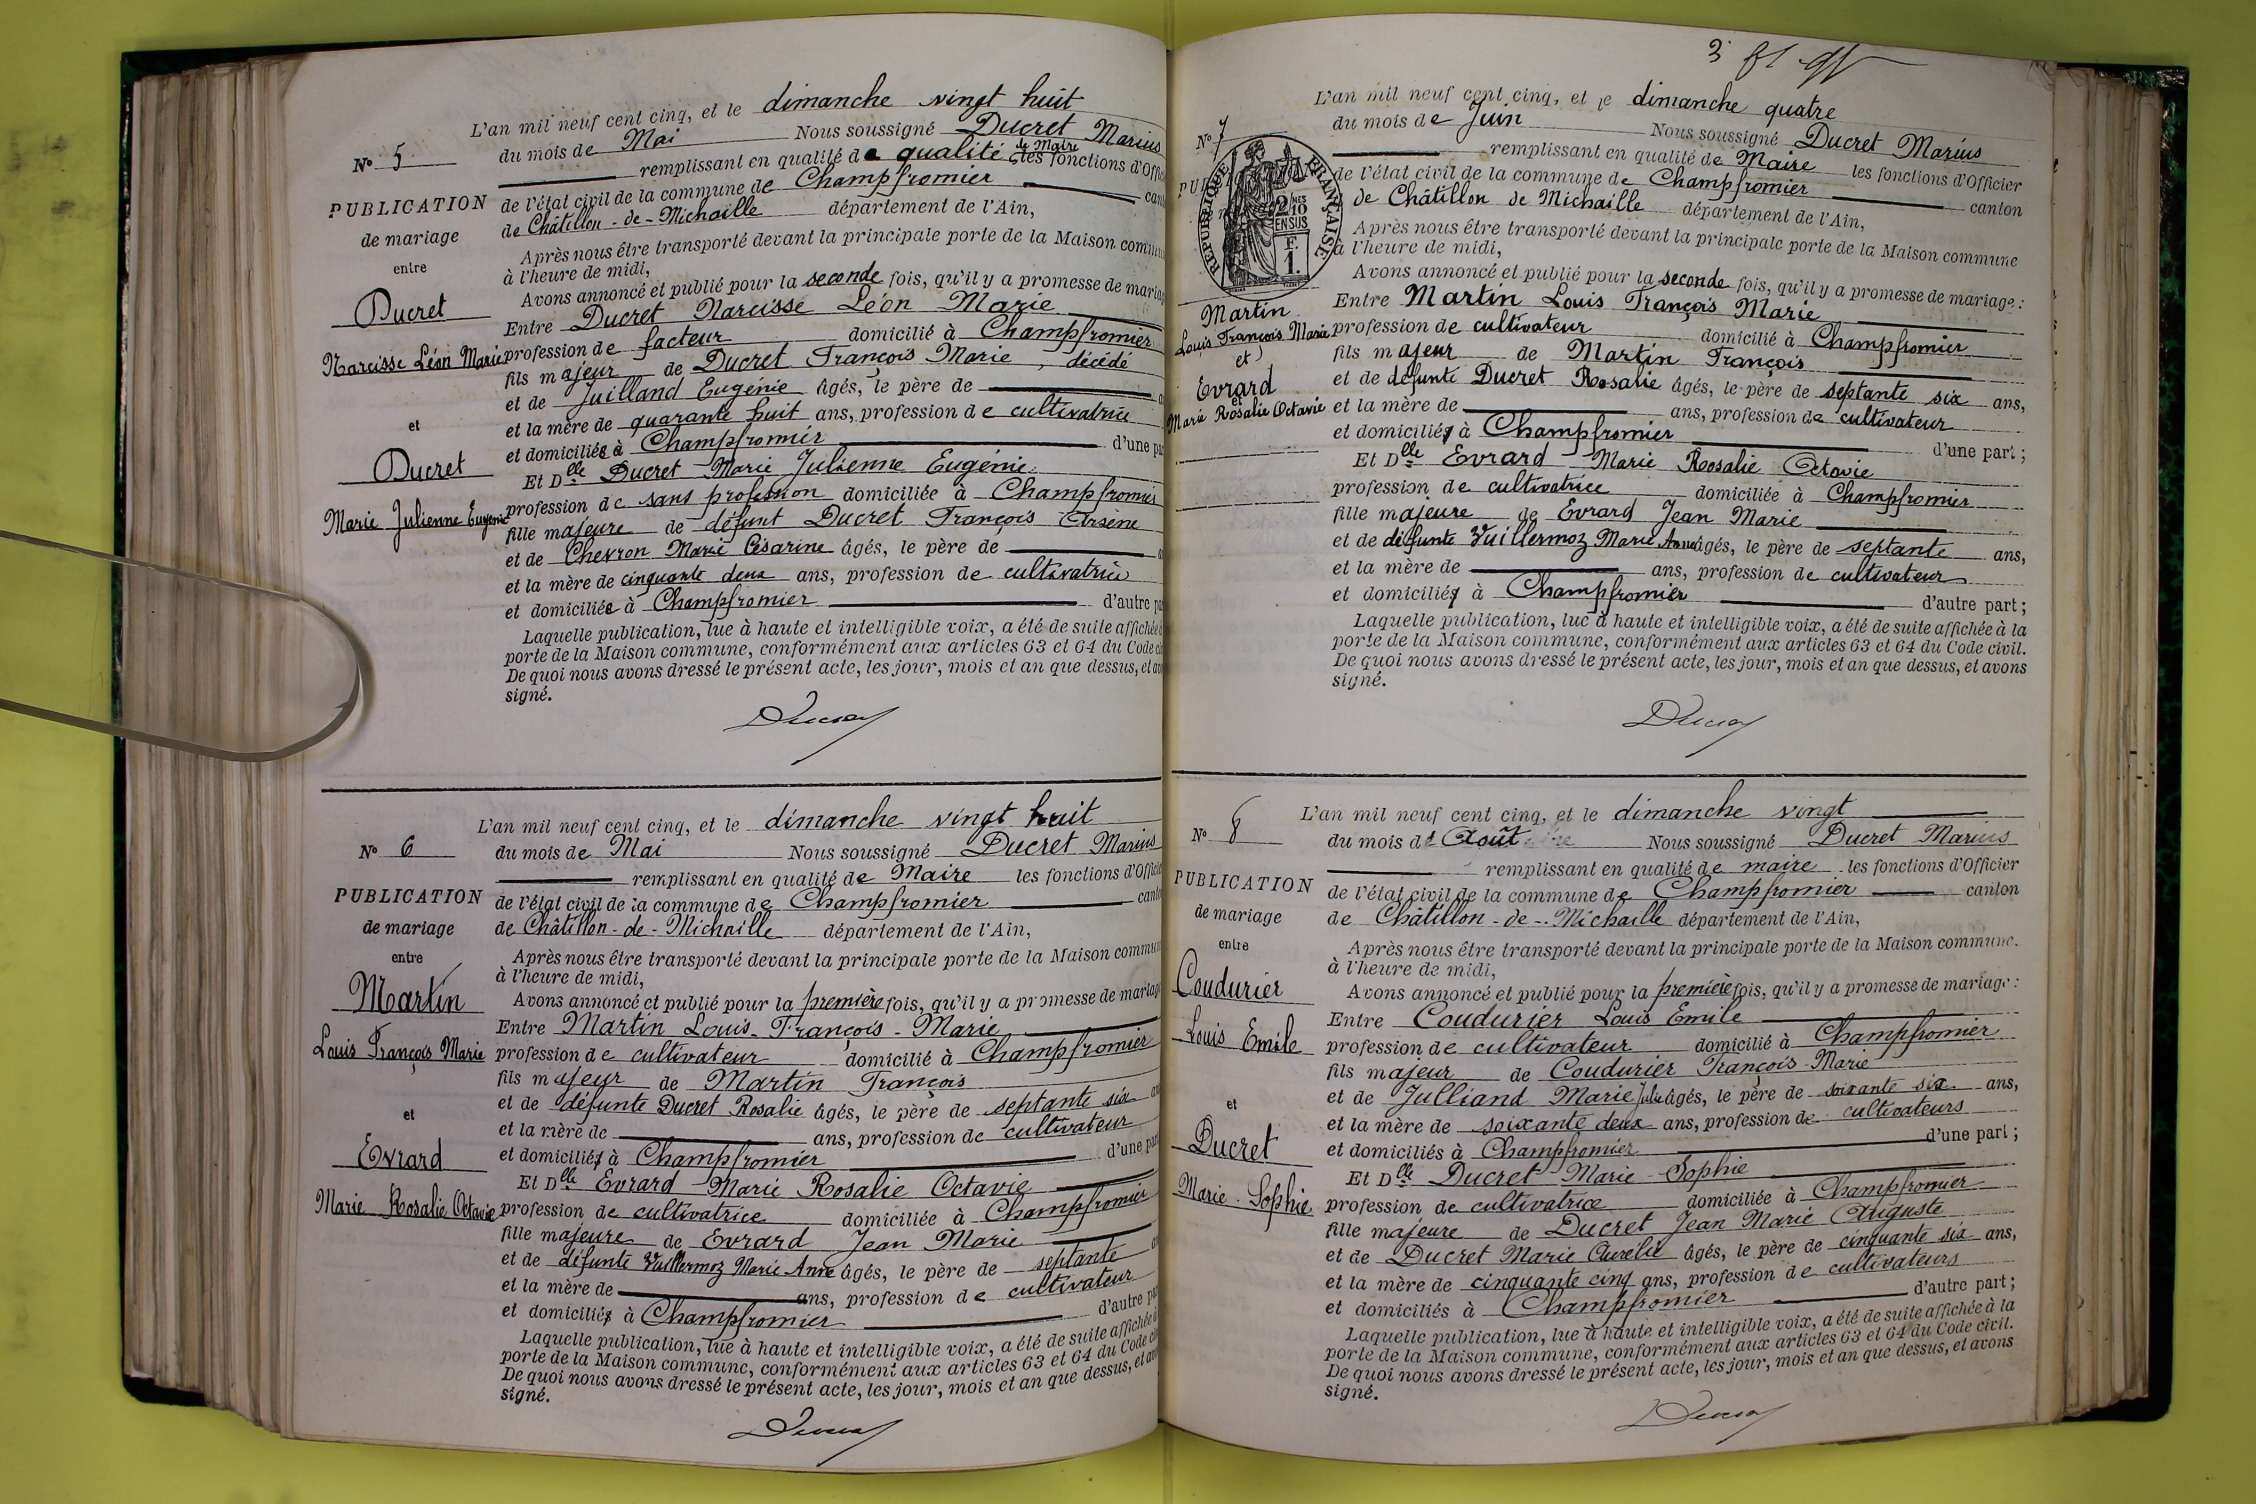 L'an mil neuf cent cinq, et le dimanche vingt huit
du mois de Mai Nous soussigné Ducret Marius
remplissant en qualité de qualité de Maire les fonctions d'Offic
N° 5
de l'état civil de la commune de Champfromier can
PUBLICATION
de Châtillon-de-Michaille département de l'Ain,
de mariage
Après nous être transporté devant la principale porte de la Maison commu
entre
à l'heure de midi,
Avons annoncé et publié pour la seconde fois, qu'il y a promesse de maria
Ducret
Entre Ducret Narcisse Léon Marie
Narcisse Léon Marie
profession de facteur domicilié à Champfromier
fils majeur de Ducret François Marie, décédé
et de Juilland Eugénie âgés, le père de
et
et la mère de quarante huit ans, profession de cultivatrice
et domiciliés à Champfromier d'une pa
Ducret
Et Dlle Ducret Marie Julienne Eugénie
Marie Julienne Eugénie
profession de sans profession domiciliée à Champfromier
fille majeure de défunt Ducret François Arsène
et de Chevron Marie Césarine âgés, le père de
et la mère de cinquante deux ans, profession de cultivatrice
et domiciliée à Champfromier d'autre pa
Laquelle publication, lue à haute et intelligible voix, a été de suite affichée à
porte de la Maison commune, conformément aux articles 63 et 64 du Code ci
De quoi nous avons dressé le présent acte, les jour, mois et an que dessus, et av
signé.
Ducret
L'an mil neuf cent cinq, et le dimanche vingt huit
N° 6
du mois de Mai Nous soussigné Ducret Marius
remplissant en qualité de Maire les fonctions d'Offici
PUBLICATION
de l'état civil de la commune de Champfromier canto
de mariage
de Châtillon-de-Michaille département de l'Ain,
entre
Après nous être transporté devant la principale porte de la Maison commun
à l'heure de midi,
Martin
Avons annoncé et publié pour la première fois, qu'il y a promesse de mariag
Entre Martin Louis-François-Marie
Louis François Marie
profession de cultivateur domicilié à Champfromier
fils majeur de Martin François
et
et de défunte Ducret Rosalie âgés, le père de septante six an
et la mère de ans, profession de cultivateur
Evrard
et domicilié à Champfromier d'une part
Et Dlle Evrard Marie Rosalie Octavie
Marie Rosalie Octavie
profession de cultivatrice domiciliée à Champfromier
fille majeure de Evrard Jean Marie
et de défunte Vuillermoz Marie Anne âgés, le père de septante an
et la mère de ans, profession de cultivateur
et domicilié à Champfromier d'autre pa
Laquelle publication, lue à haute et intelligible voix, a été de suite affichée à
porte de la Maison commune, conformément aux articles 63 et 64 du Code ci
De quoi nous avons dressé le présent acte, les jour, mois et an que dessus, et avo
signé.
Ducret
3
L'an mil neuf cent cinq, et le dimanche quatre
du mois de Juin Nous soussigné Ducret Marius
N° 7
remplissant en qualité de Maire les fonctions d'Officier
de l'état civil de la commune de Champfromier canton
PU
RÉPUBLIQUE FRANÇAISE
2/10 MES
EN SUS
F.
1.
de Châtillon de Michaille département de l'Ain,
Après nous être transporté devant la principale porte de la Maison commune
à l'heure de midi,
Avons annoncé et publié pour la seconde fois, qu'il y a promesse de mariage :
Martin
Entre Martin Louis François Marie
Louis François Marie
profession de cultivateur domicilié à Champfromier
et
fils majeur de Martin François
Evrard
et de défunte Ducret Rosalie âgés, le père de septante six ans,
et
Marie Rosalie Octavie
et la mère de ans, profession de cultivateur
et domicilié à Champfromier d'une part ;
Et Dlle Evrard Marie Rosalie Octavie
profession de cultivatrice domiciliée à Champfromier
fille majeure de Evrard Jean Marie
et de défunte Vuillermoz Marie Anne âgés, le père de septante ans,
et la mère de ans, profession de cultivateur
et domicilié à Champfromier d'autre part ;
Laquelle publication, lue à haute et intelligible voix, a été de suite affichée à la
porte de la Maison commune, conformément aux articles 63 et 64 du Code civil.
De quoi nous avons dressé le présent acte, les jour, mois et an que dessus, et avons
signé.
Ducret
L'an mil neuf cent cinq, et le dimanche vingt
N° 8
du mois d'Août Nous soussigné Ducret Marius
remplissant en qualité de maire les fonctions d'Officier
PUBLICATION
de l'état civil de la commune de Champfromier canton
de mariage
de Châtillon-de-Michaille département de l'Ain,
entre
Après nous être transporté devant la principale porte de la Maison commune.
à l'heure de midi,
Coudurier
Avons annoncé et publié pour la première fois, qu'il y a promesse de mariage :
Entre Coudurier Louis Emile
Louis Emile
profession de cultivateur domicilié à Champfromier
fils majeur de Coudurier François-Marie
et
et de Julliand Marie Julie âgés, le père de soixante six ans,
et la mère de soixante deux ans, profession de cultivateurs
Ducret
et domiciliés à Champfromier d'une part ;
Et Dlle Ducret Marie-Sophie
Marie-Sophie
profession de cultivatrice domiciliée à Champfromier
fille majeure de Ducret Jean Marie Auguste
et de Ducret Marie Aurélie âgés, le père de cinquante six ans,
et la mère de cinquante cinq ans, profession de cultivateurs
et domiciliés à Champfromier d'autre part ;
Laquelle publication, lue à haute et intelligible voix, a été de suite affichée à la
porte de la Maison commune, conformément aux articles 63 et 64 du Code civil.
De quoi nous avons dressé le présent acte, les jour, mois et an que dessus, et avons
signé.
Ducret